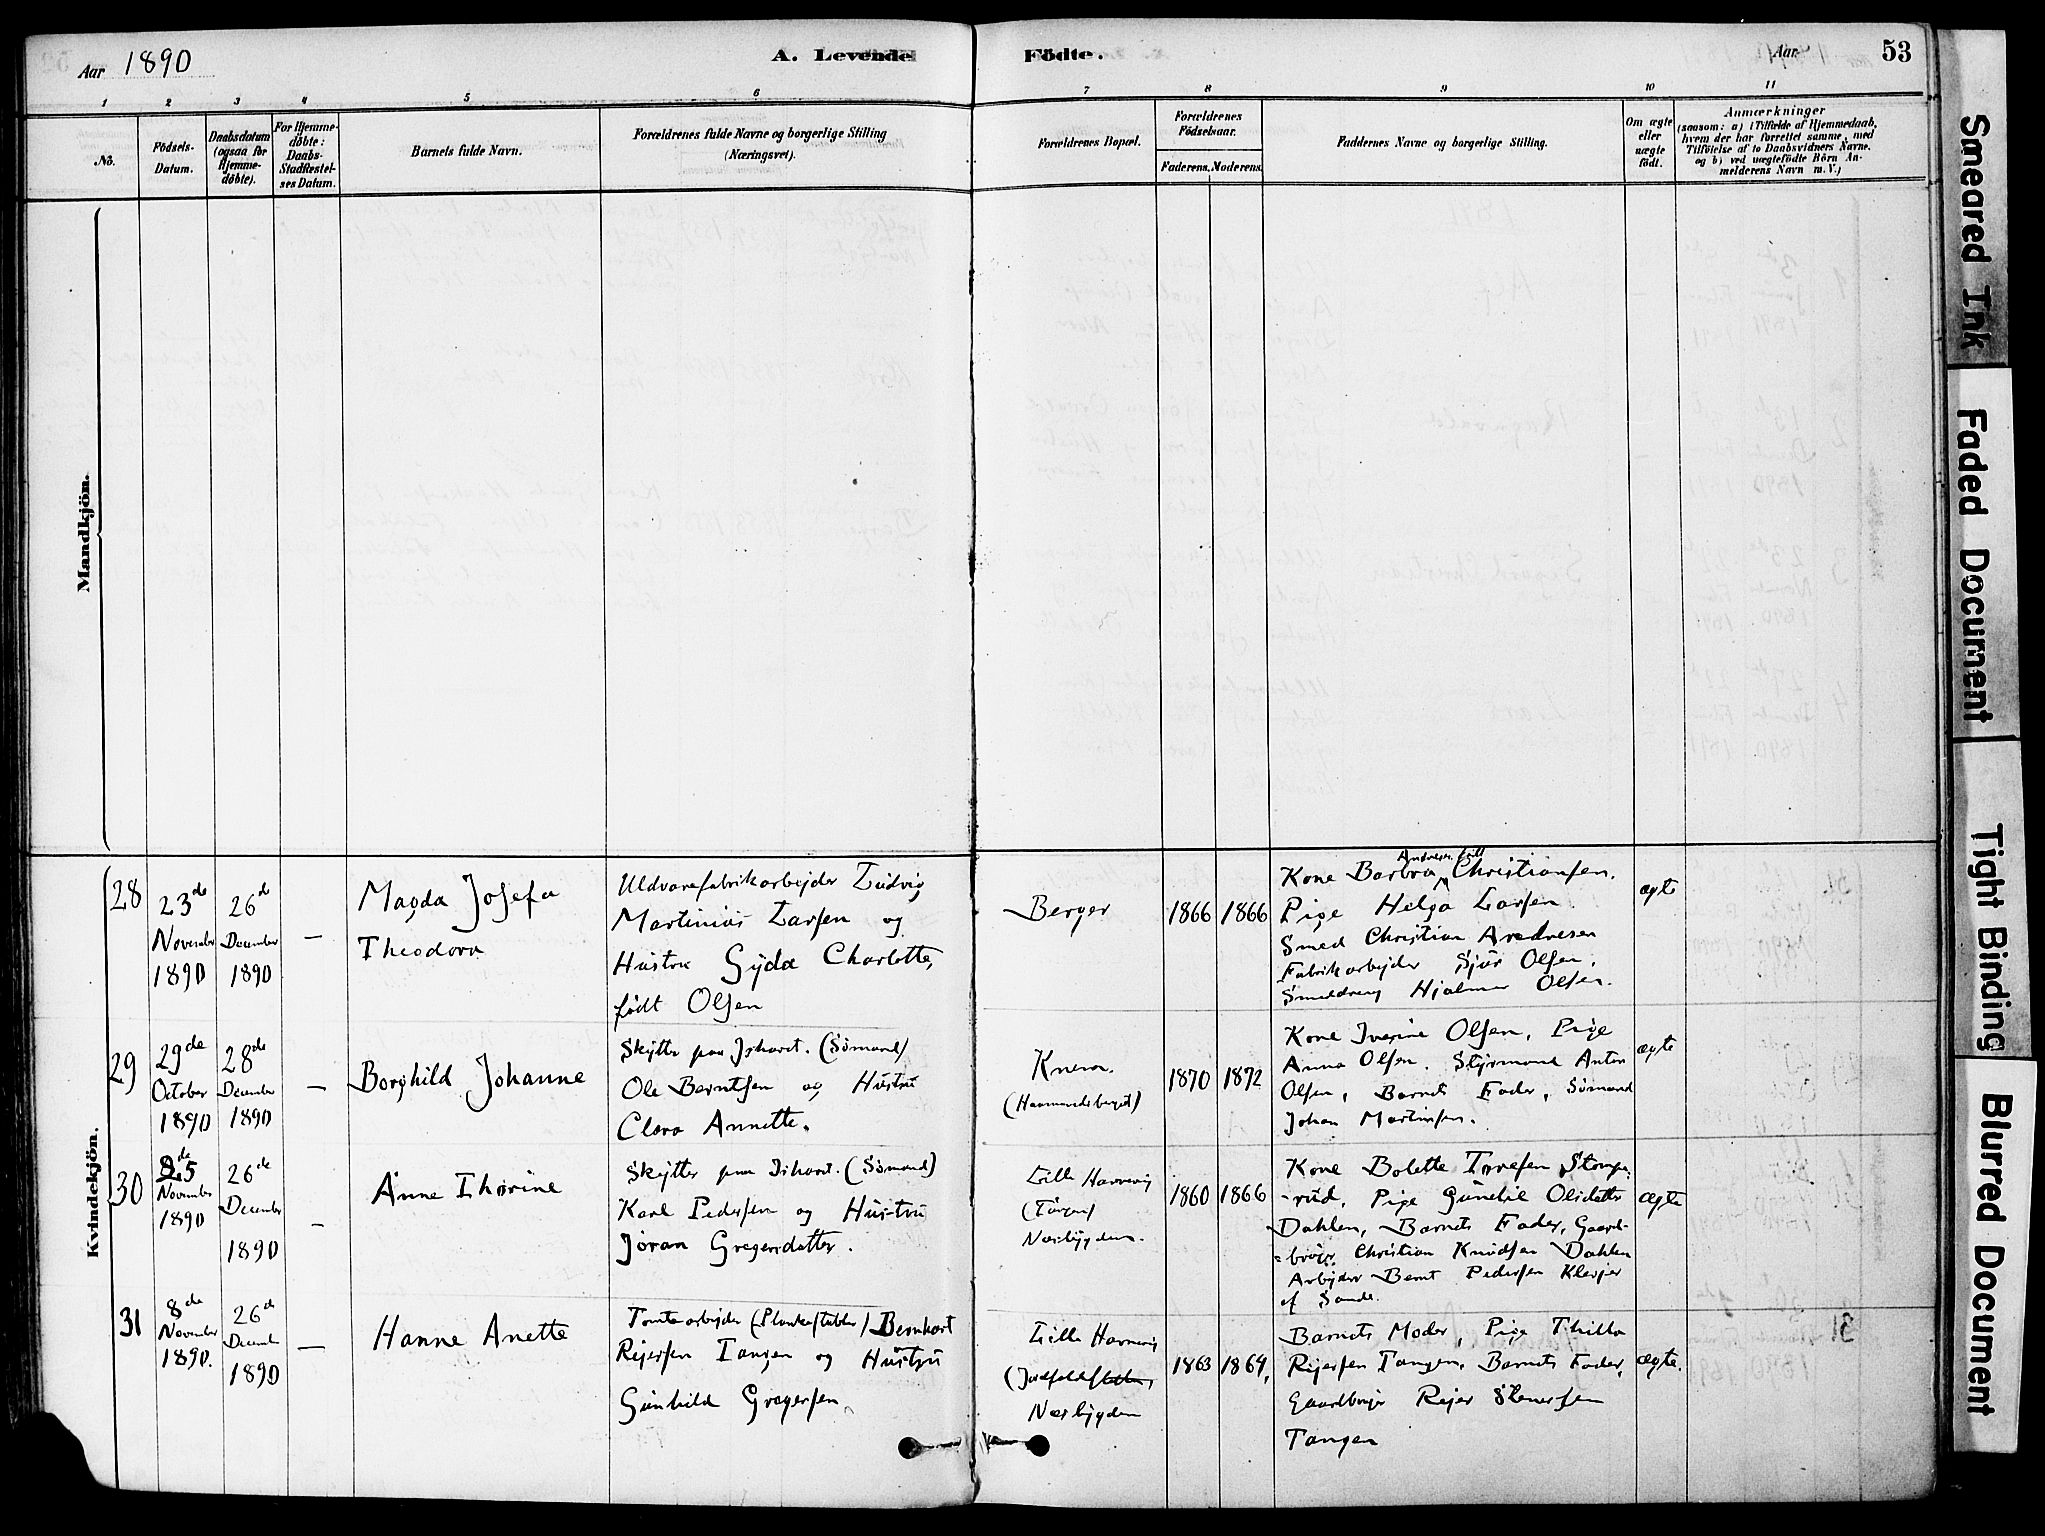 Aar 1890
A. Levende Födte.
Aar
53
1 2 3 4 5 6 7 8 9 10 11
No.
Födsels-
Datum.
Daabsdatum
(ogsaa for
Hjemme-
døbte).
For Hjemme-
døbte:
Daabs-
Stadfæstel-
ses Datum.
Barnets fulde Navn.
Forældrenes fulde Navne og borgerlige Stilling
(Næringsvei).
Forældrenes Bopæl.
Forældrenes
Födselsaar.
Faderens. Moderens.
Faddernes Navne og borgerlige Stilling.
Om ægte
eller
uægte
födt.
Anmærkninger
(saasom: a) i Tilfælde af Hjemmedaab,
hvem der har forrettet samme, med
Tilföielse af to Daabsvidners Navne.
og b) ved uægtefödte Börn An-
melderens Navn m. V.)
Mandkjön.
Kvindekjön.
28
23de
November
1890
26de
December
1890
—
Magda Josefa
Theodora
Uldvarefabrikarbejder Ludvig
Martinius Larsen og
Hustru Gyda Charlotte,
født Olsen
Berger
1866 1866
Kone Barbra Christiansen.
Pige Helga Larsen
Smed Christian Andresen
Fabrikarbejder Sjur Olsen,
Smeddreng Hjalmar Olsen.
ægte
29
29de
October
1890
28de
December
1890
—
Borghild Johanne
Skytte paa Ishavet. (Sømand)
Ole Berntsen og Hustru
Clara Annette.
Knem.
(Havmandsberget)
1870 1872
Kone Iverine Olsen, Pige
Anna Olsen. Styrmand Anton
Olsen, Barnets Fader, Sømand
Johan Martinsen.
ægte
30
25de
November
1890
26de
December
1890
—
Anne Thorine
Skytter paa Ishavet. (Sømand)
Karl Pedersen og Hustru
Jøran Gregersdatter.
Lille Havnevig
(Tangen)
Nesbygden.
1860 1866
Kone Bolette Iversen Stompe-
-rud, Pige Gunhil Olsdatter
Dahlen, Barnets Fader, Gaard-
-bruger Christian Knudsen Dahlen
Arbejder Bernt Pedersen Klevjer
af Sande.
ægte
31
8de
November
1890.
26de
Decemb
1890
—
Hanne Anette
Tomtearbejder (Plankestabler) Bernhart
Rejersen Tangen og Hustru
Gunhild Gregersen
Lille Havnevig
Nesbygden
1863 1864,
Barnets Moder, Pige Thilla
Rejersen Tangen, Barnets Fader,
Gaardbruger Rejer Stenersen
Tangen
ægte.
Smeared Ink
Faded Document
Tight Binding
Blurred Document